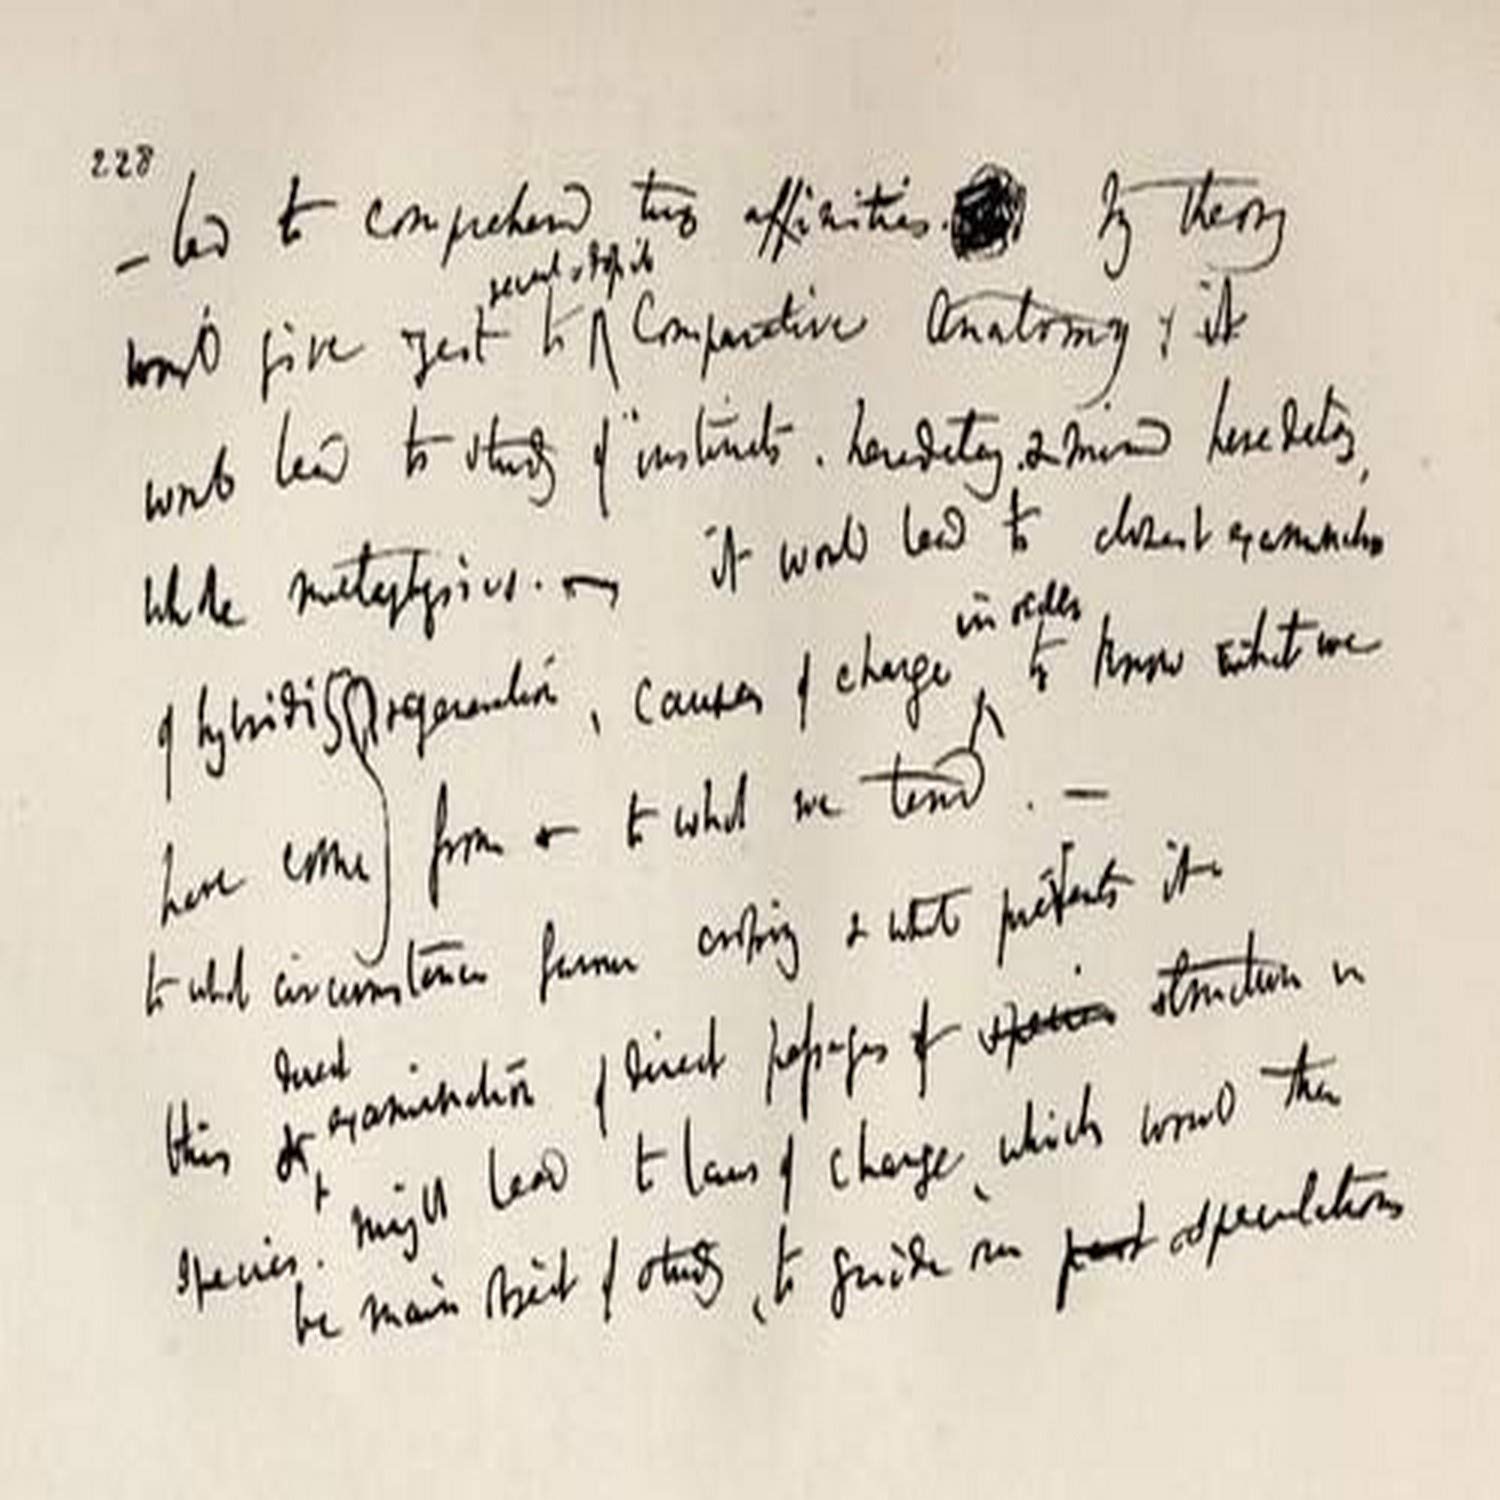 228
– led to comprehend true affinities. My theory
would give zest to recent & Fossil Comparative Anatomy; it
would lead to study of instincts, hereditary. & mind hereditary,
whole metaphysics. – it would lead to closest examination
of hybridity regeneration, causes of change in order to know what we
have come from & to what we tend. –
to what circumstances favour crossing & what prevents it –
this & direct examination of direct passages of species structure in
species. might lead to laws of change, which would then
be main object of study, to guide our past speculations